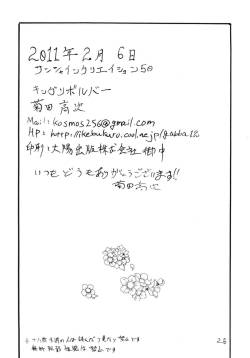 2011年2月6日
サンシャインクリエイション50
キングリボルバー
菊田高次
Mail: kosmos256@gmail.com
HP: http://ikebukuro.cool.ne.jp/gabba12
印刷:大陽出版株式会社御中
いつもどうもありがとうございます!!
菊田高次
無断転載
禁止です
26